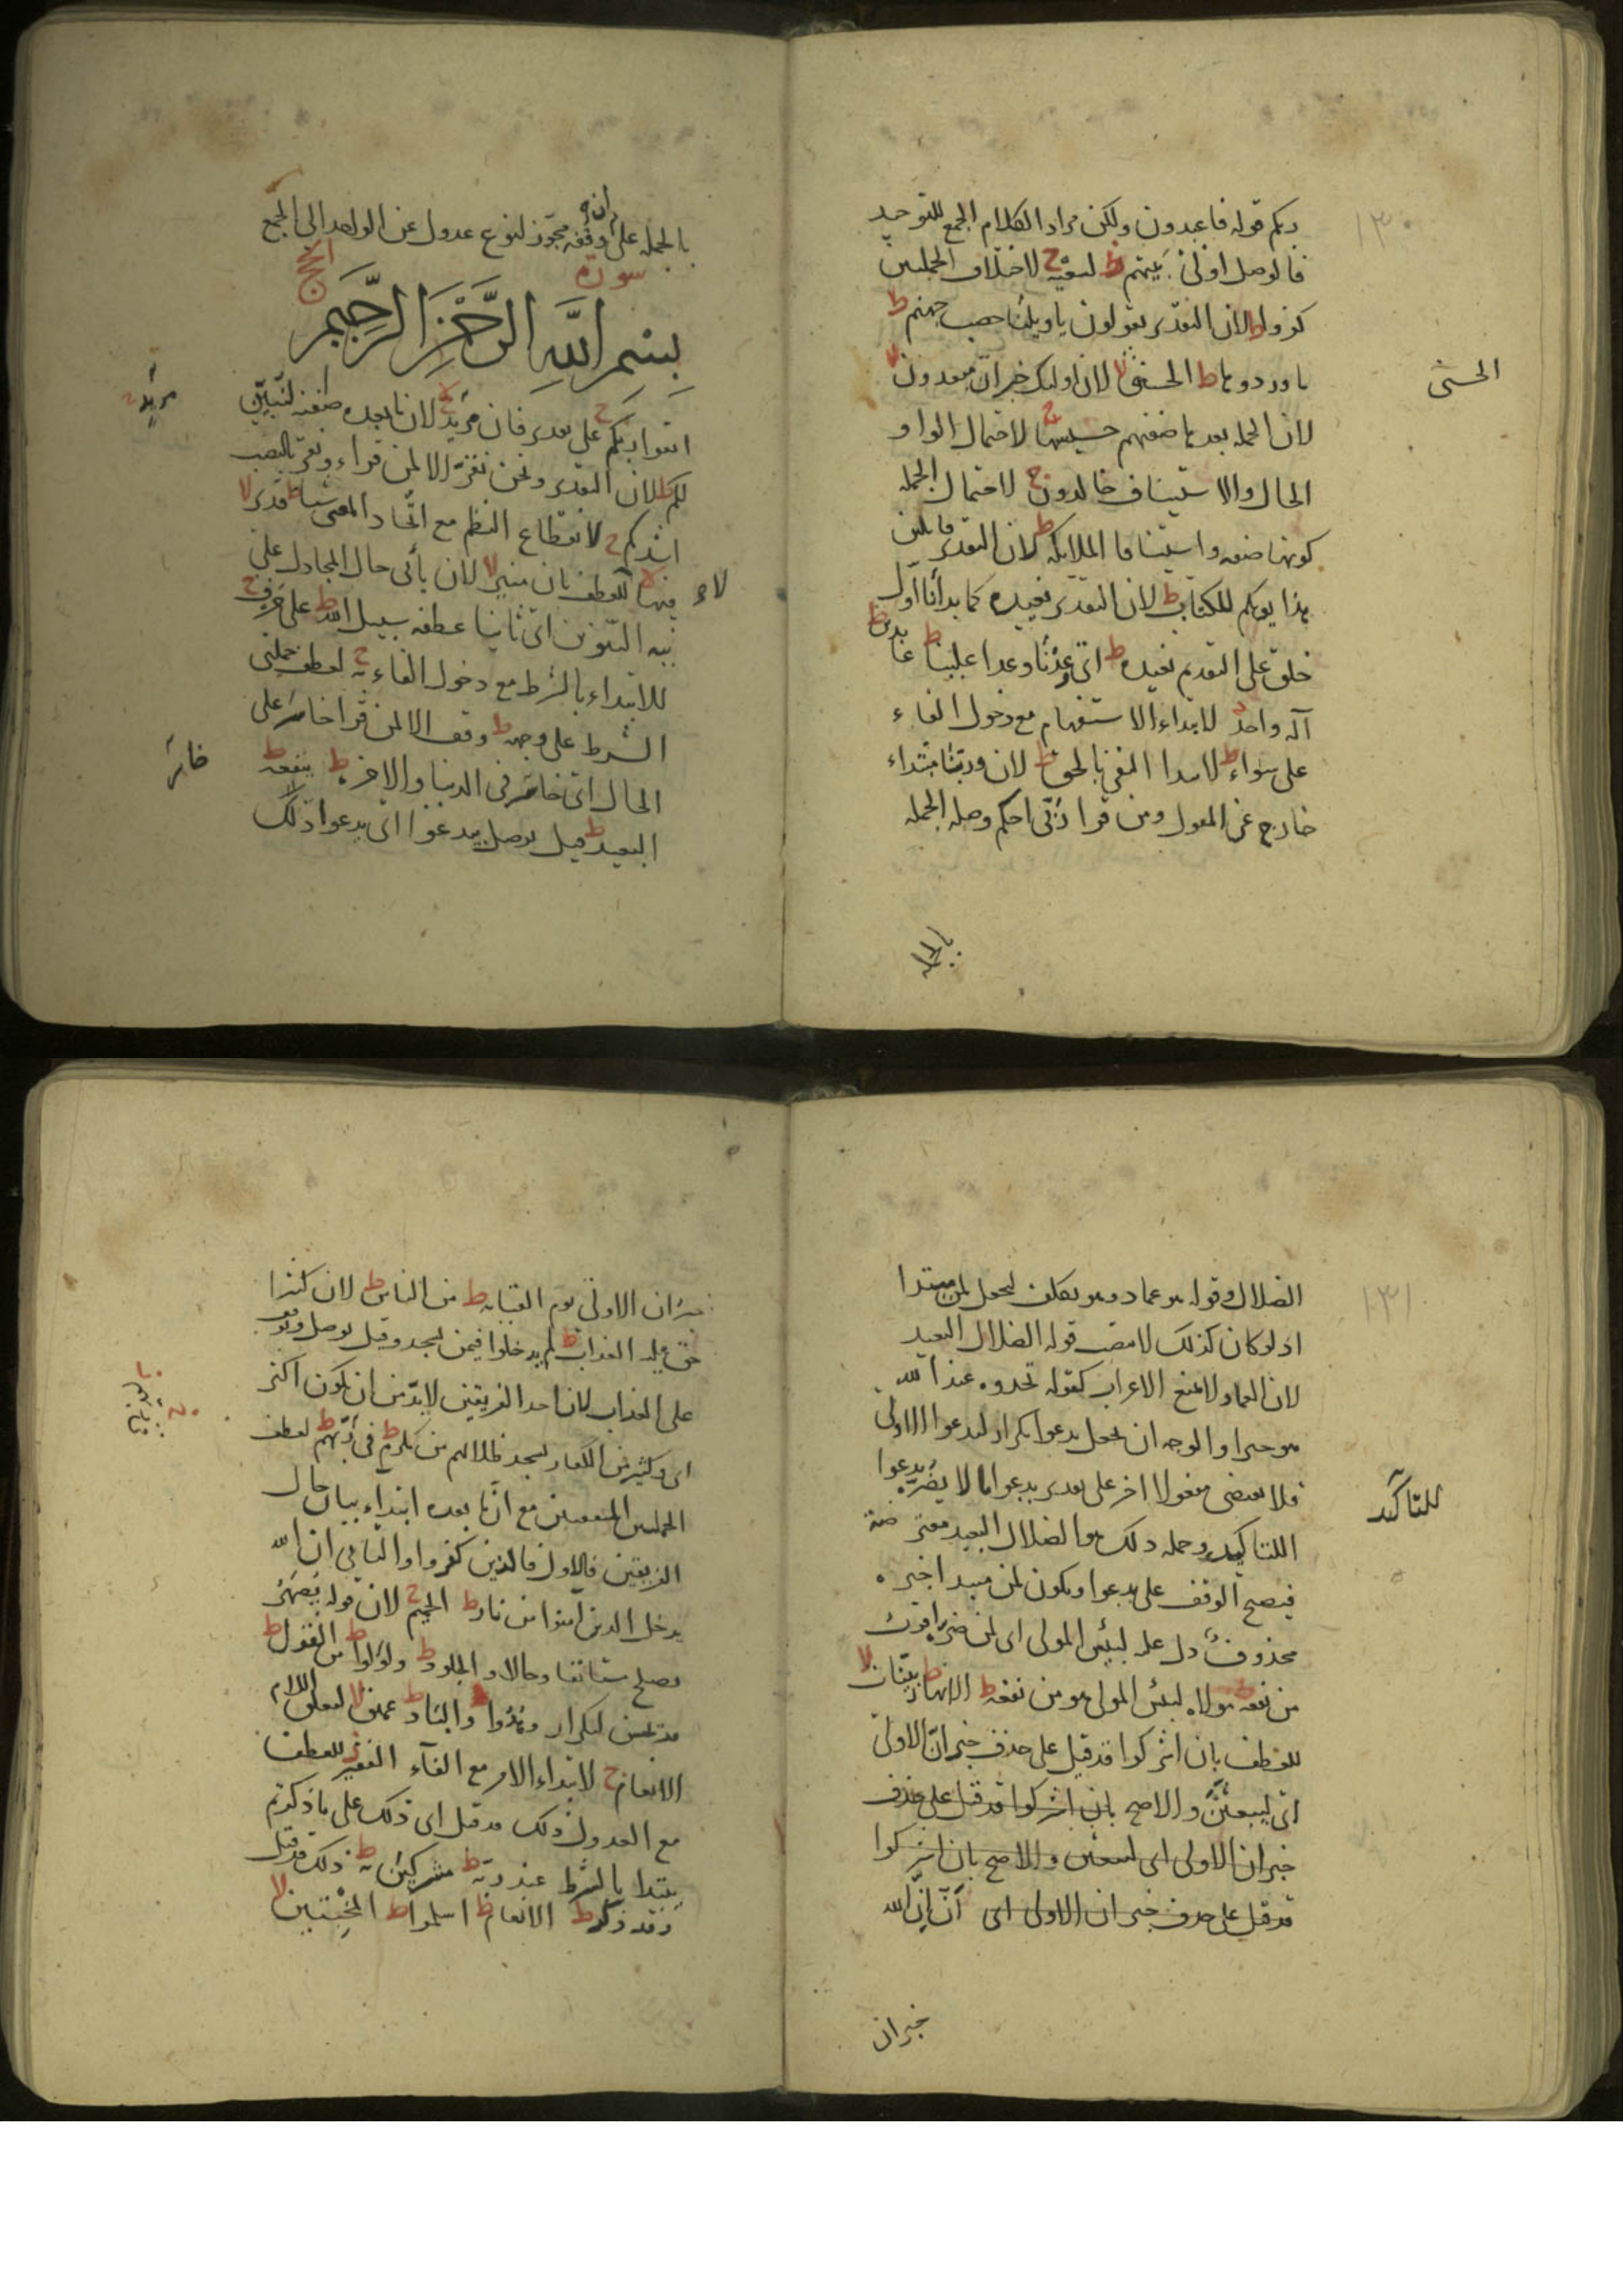 ١٣٠
ربكم قوله فاعبدون ولكن مراد الكلام الجمع للتوحيد
فالوصل اولى بينهم ط لسعيه ج لاختلاف الجملتين
كفروا ط لان التقدير يقولون يا ويلنا حصب جهنم ط
ما وردوها ط الحسنى لا لان اولئك خبر ان مبعدون لا
الحسنى
لان الجملة بعدها صفتهم حسيسها ج لاحتمال الواو
الحال والاستيناف خالدون ج لاحتمال الجملة
كونها صفة واستينافا الملائكة ط لان التقدير قائلين
هذا يومكم للكتاب ط لان التقدير نعيده كما بدأنا اول
خلق على التقديم نعيده ط اي وعدنا وعدا علينا ط عابدين ط
اله واحد ج لابتداء الاستفهام مع دخول الفاء
على سواء ط لابتداء النفي بالحق ط لان وربنا مبتداء
خارج عن المقول ومن قرا ربي احكم وصله الجملة
بالجملة
بالجملة على ان وقفه مجوز لنوع عدول عن الواحد الى الجمع
سورة الحج
بسم الله الرحمن الرحيم
اتقوا ربكم ج على تقدير فان مريد لا لان ما بعده صفته لنبين
مريد
لكم ط لان التقدير ونحن نقر الا لمن قراء ونقر بالنصب
اشدكم ج لانقطاع النظم مع اتحاد المعنى شيئا ط قدير لا
فيها لا للعطف بان منير لا لان ثاني حال المجادل على
لا
نية التنوين اي ثانيا عطفه سبيل الله ط على حرف ج
للابتداء بالشرط مع دخول الفاء به ج لعطف جملتي
الشرط على وجهه ط وقف الا لمن قرا خاسر على
خاسر
الحال اي خاسر في الدنيا والاخرة ط ينفعه ط
البعيد ط قيل يوصل بيدعوا اي يدعوا ذلك
١٣١
الضلال وقوله هو عماد وهو يمكن لجعل لمن مبتدا
اذ لو كان كذلك لانتصب قوله الضلال البعيد
لان العماد لا يمنع الاعراب كقوله تجدوه عند الله
هو خيرا والوجه ان يجعل يدعوا تكرار ليدعوا الاولى
فلا يقتضي مفعولا اخر على تقدير يدعوا ما لا يضره يدعوا
للتاكيد
اللتاكيد وجملة ذلك هو الضلال البعيد معترضة
فيصح الوقف على يدعوا ويكون لمن مبتدا خبره
محذوف دل عليه لبئس المولى اي لمن ضره اقرب
من نفعه مولاه لبئس المولى هو من نفعه ط الانهار ط بينات لا
للعطف بان اشركوا قد قيل على حذف خبر ان الاولى
اي ليبعثن والاصح بان اشركوا قد قيل على حذف
خبر ان الاولى اي لتبعثن والاصح بان اشركوا
قد قيل على حذف خبر ان الاولى اي ان ان الله
خبر ان
خبر ان الاولى يوم القيامة ط من الناس ط لان كثيرا
حق عليه العذاب ط لم يدخلوا فيمن يسجد وقيل يوصل ويوقف
على العذاب لان احد الفريقين لابد من ان يكون اكثر
اي وكثير من الكفار يسجد ظلالهم من مكرم ط في ربهم ط لعطف
الجملتين المتفقتين مع ان ما بعده ابتداء بيان حال
الفريقين فالاول فالذين كفروا والثاني ان الله
يدخل الذين امنوا من نار ط الحميم ج لان قوله يصهر
يصلح مستانفا وحالا والجلود ط ولؤلؤا ط من القول ط
قد يحسن لتكرار وهدوا والباد ط عميق لا لتعلق اللام
الانعام ج لابتداء الامر مع الفاء الفقير للعطف
مع العدول ذلك قد قيل اي ذلك على ما ذكرتم
يبتدا بالشرط عند ربه ط مشركين به ط ذلك قد قيل
وقد ذكر ط الانعام ط اسلموا ط المخبتين لا